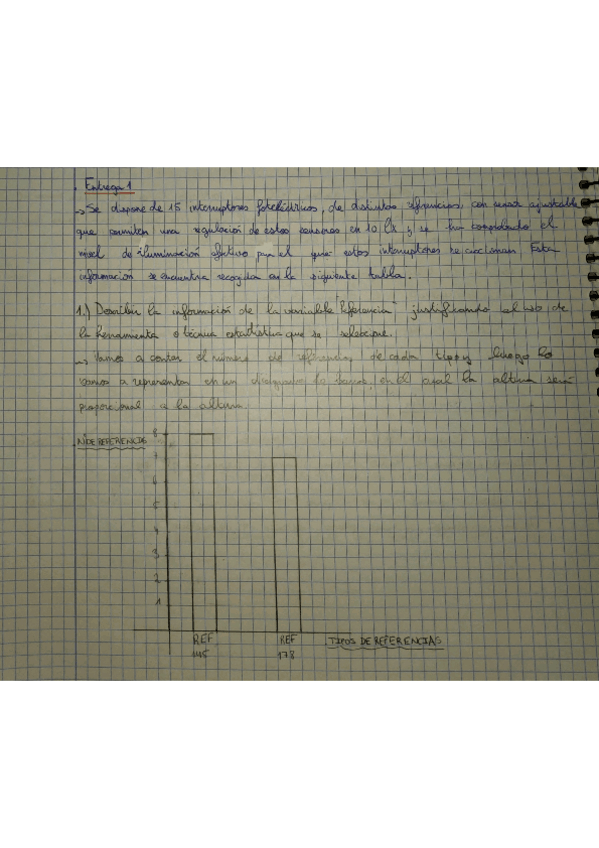 Entrega 1
→ Se dispone de 15 interruptores fotoeléctricos, de distintas referencias, con sensor ajustable
que permiten una regulación de estos sensores en 10 lx y se ha comprobado el
nivel de iluminación efectivo para el que estos interruptores se accionan. Esta
información se encuentra recogida en la siguiente tabla.
1.) Describir la información de la variable "Referencia" justificando el uso de
la herramienta o técnica estadística que se seleccione.
→ Vamos a contar el número de referencias de cada tipo y luego lo
vamos a representar en un diagrama de barras, en el cual la altura será
proporcional a la altura.
Nº DE REFERENCIAS
8
7
6
5
4
3
2
1
REF 145
REF 178
TIPOS DE REFERENCIAS